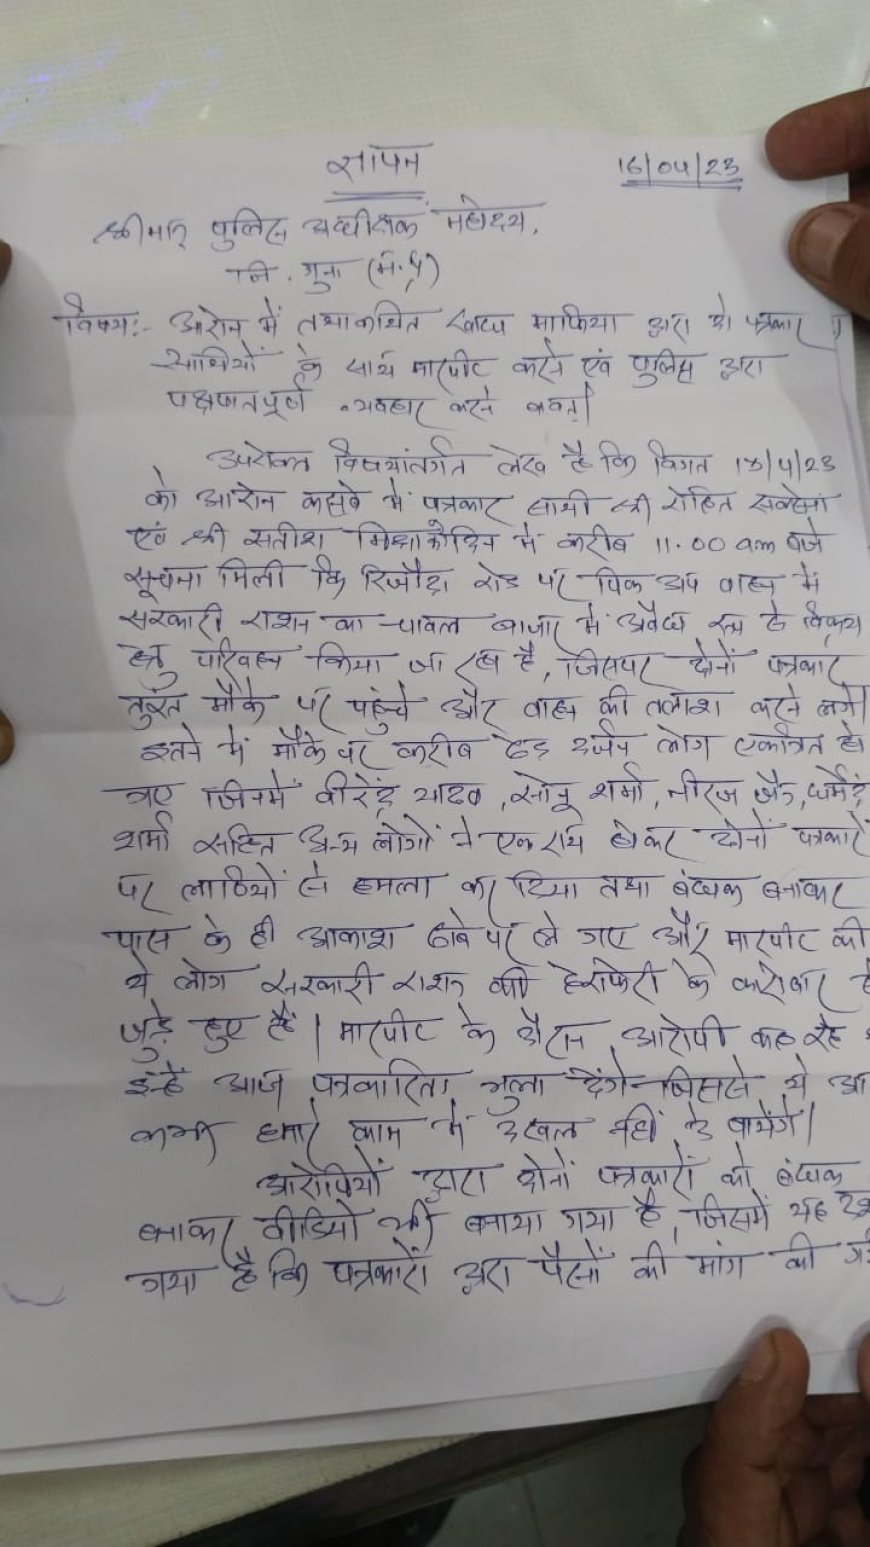 ज्ञापन 16/04/23
श्रीमान् पुलिस अधीक्षक महोदय,
जि. गुना (म.प्र)
विषय:- आरोन में तथाकथित खाद्य माफिया द्वारा दो पत्रकार
साथियों के साथ मारपीट करने एवं पुलिस द्वारा
पक्षपातपूर्ण व्यवहार करने बावत्।
उपरोक्त विषयांतर्गत लेख है कि विगत /4/23
को आरोन कस्बे में पत्रकार साथी श्री रोहित सक्सेना
एवं श्री सतीश में करीब 11.00 am बजे
सूचना मिली कि रिजौदा रोड पर पिक अप वाहन में
सरकारी राशन का चावल बाजार में अवैध रूप से विक्रय
हेतु परिवहन किया जा रहा है, जिसपर दोनों पत्रकार
तुरंत मौके पर पहुंचे और वाहन की तलाश करने लगे।
इतने में मौके पर करीब डेढ़ दर्जन लोग एकत्रित हो
गए जिनमें वीरेंद्र यादव, सोनू शर्मा, नीरज जैन, धर्मेंद्र
शर्मा सहित अन्य लोगों ने एक राय होकर दोनों पत्रकारों
पर लाठियों से हमला कर दिया तथा बंधक बनाकर
पास के ही आकाश ढाबे पर ले गए और मारपीट की
ये लोग सरकारी राशन की हेराफेरी के कारोबार से
जुड़े हुए हैं। मारपीट के दौरान आरोपी कह रहे
इन्हें आज पत्रकारिता भुला देंगे जिससे ये
कभी हमारे काम में दखल नहीं दे पायेंगे।
आरोपियों द्वारा दोनों पत्रकारों को बंधक
बनाकर वीडियो भी बनाया गया है, जिसमें यह
गया है कि पत्रकारों द्वारा पैसों की मांग की